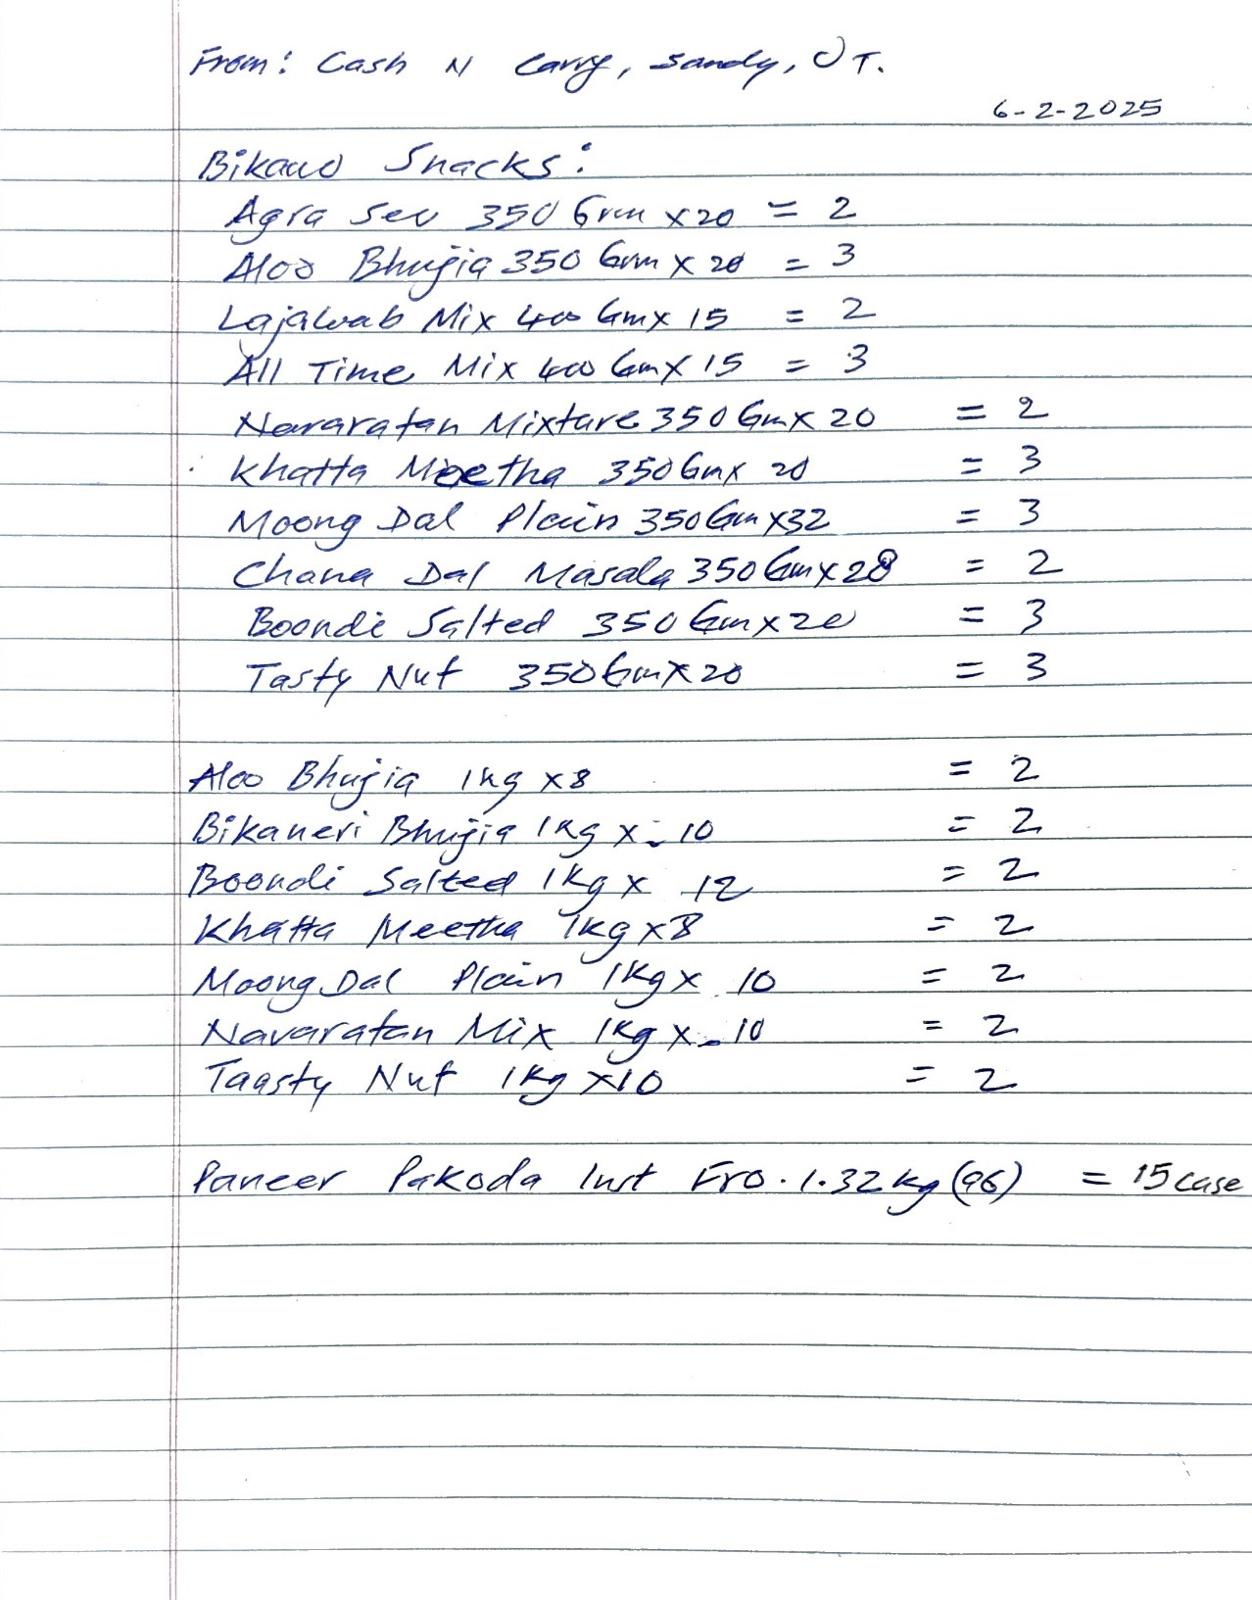 From: Cash N Carry, Sandy, UT.
6-2-2025
Bikano Snacks:
Agra Sev 350 Grm x 20 = 2
Aloo Bhujia 350 Grm x 20 = 3
Lajawab Mix 400 Gm x 15 = 2
All Time Mix 400 Gm x 15 = 3
Navaratan Mixture 350 Gm x 20 = 2
Khatta Meetha 350 Gm x 20 = 3
Moong Dal Plain 350 Gm x 32 = 3
Chana Dal Masala 350 Gm x 28 = 2
Boondi Salted 350 Gm x 20 = 3
Tasty Nut 350 Gm x 20 = 3
Aloo Bhujia 1kg x 8 = 2
Bikaneri Bhujia 1kg x 10 = 2
Boondi Salted 1kg x 12 = 2
Khatta Meetha 1kg x 8 = 2
Moong Dal Plain 1kg x 10 = 2
Navaratan Mix 1kg x 10 = 2
Taasty Nut 1kg x 10 = 2
Paneer Pakoda Inst Fro. 1.32 kg (96) = 15 case